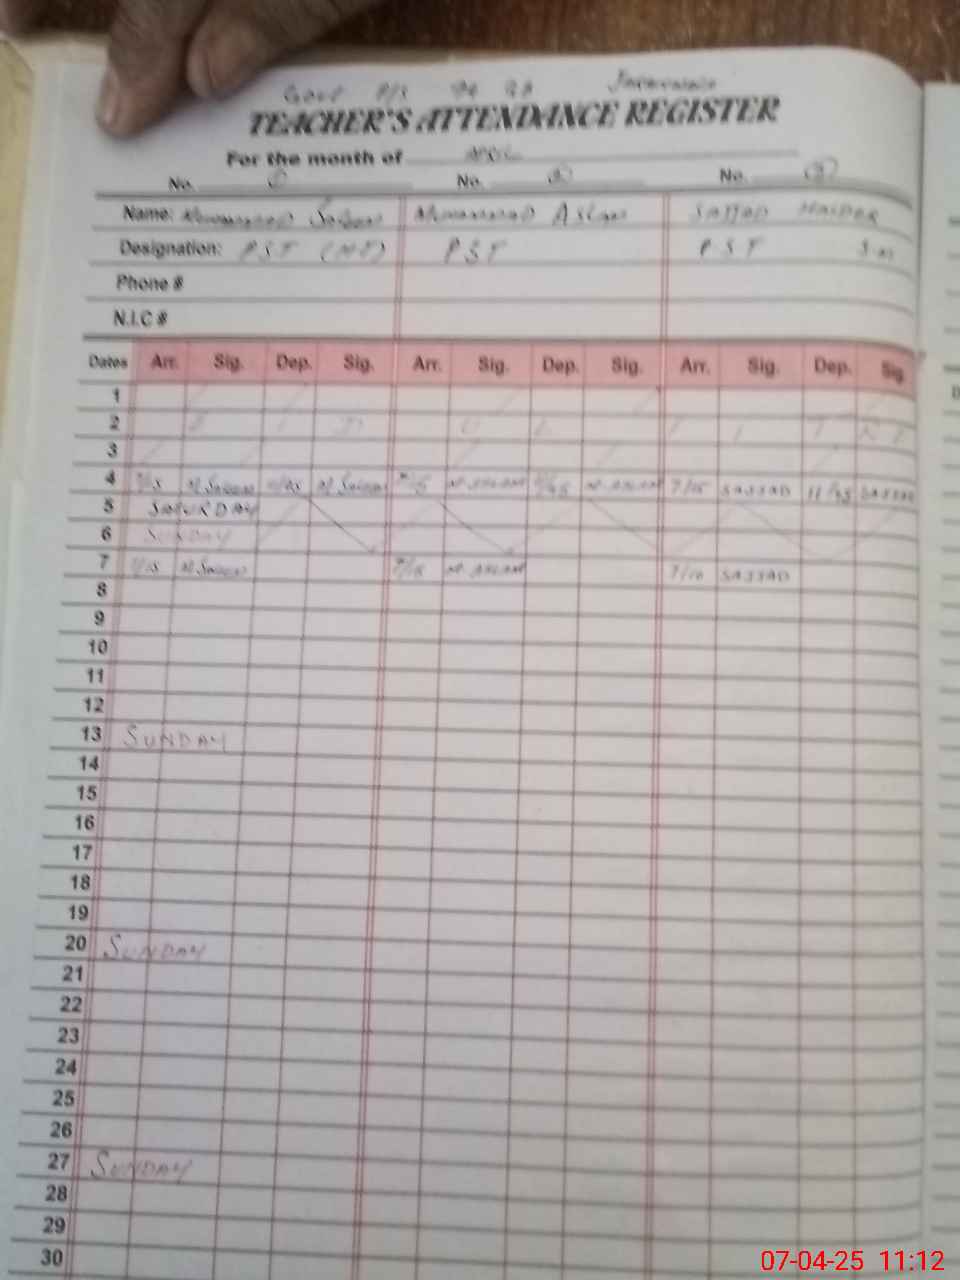 GOVT P/S
TEACHER'S ATTENDANCE REGISTER
For the month of APRIL
No. 1 No. 2 No. 3
Name: Muhammad Saleem Muhammad Aslam SAJJAD HAIDER
Designation: P.S.T P.S.T P.S.T
Phone #
N.I.C #
Dates Arr. Sig. Dep. Sig. Arr. Sig. Dep. Sig. Arr. Sig. Dep. Sig.
1
2
3
4 7/15 M. Saleem M. Saleem 7/15 M. ASLAM 11/45 M. ASLAM 7/15 SAJJAD 11/45 SAJJAD
5 SATURDAY
6 SUNDAY
7 7/15 M. Saleem 7/15 M. ASLAM SAJJAD
8
9
10
11
12
13 SUNDAY
14
15
16
17
18
19
20 SUNDAY
21
22
23
24
25
26
27 SUNDAY
28
29
30
07-04-25 11:12